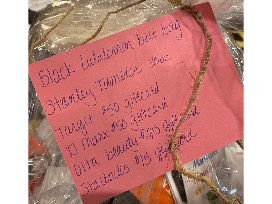 Black Lululemon belt bag
Stanley Tumbler 30oz
Target $50 giftcard
TJ Maxx $50 giftcard
Ulta beauty $25 giftcard
Starbucks $25 giftcard